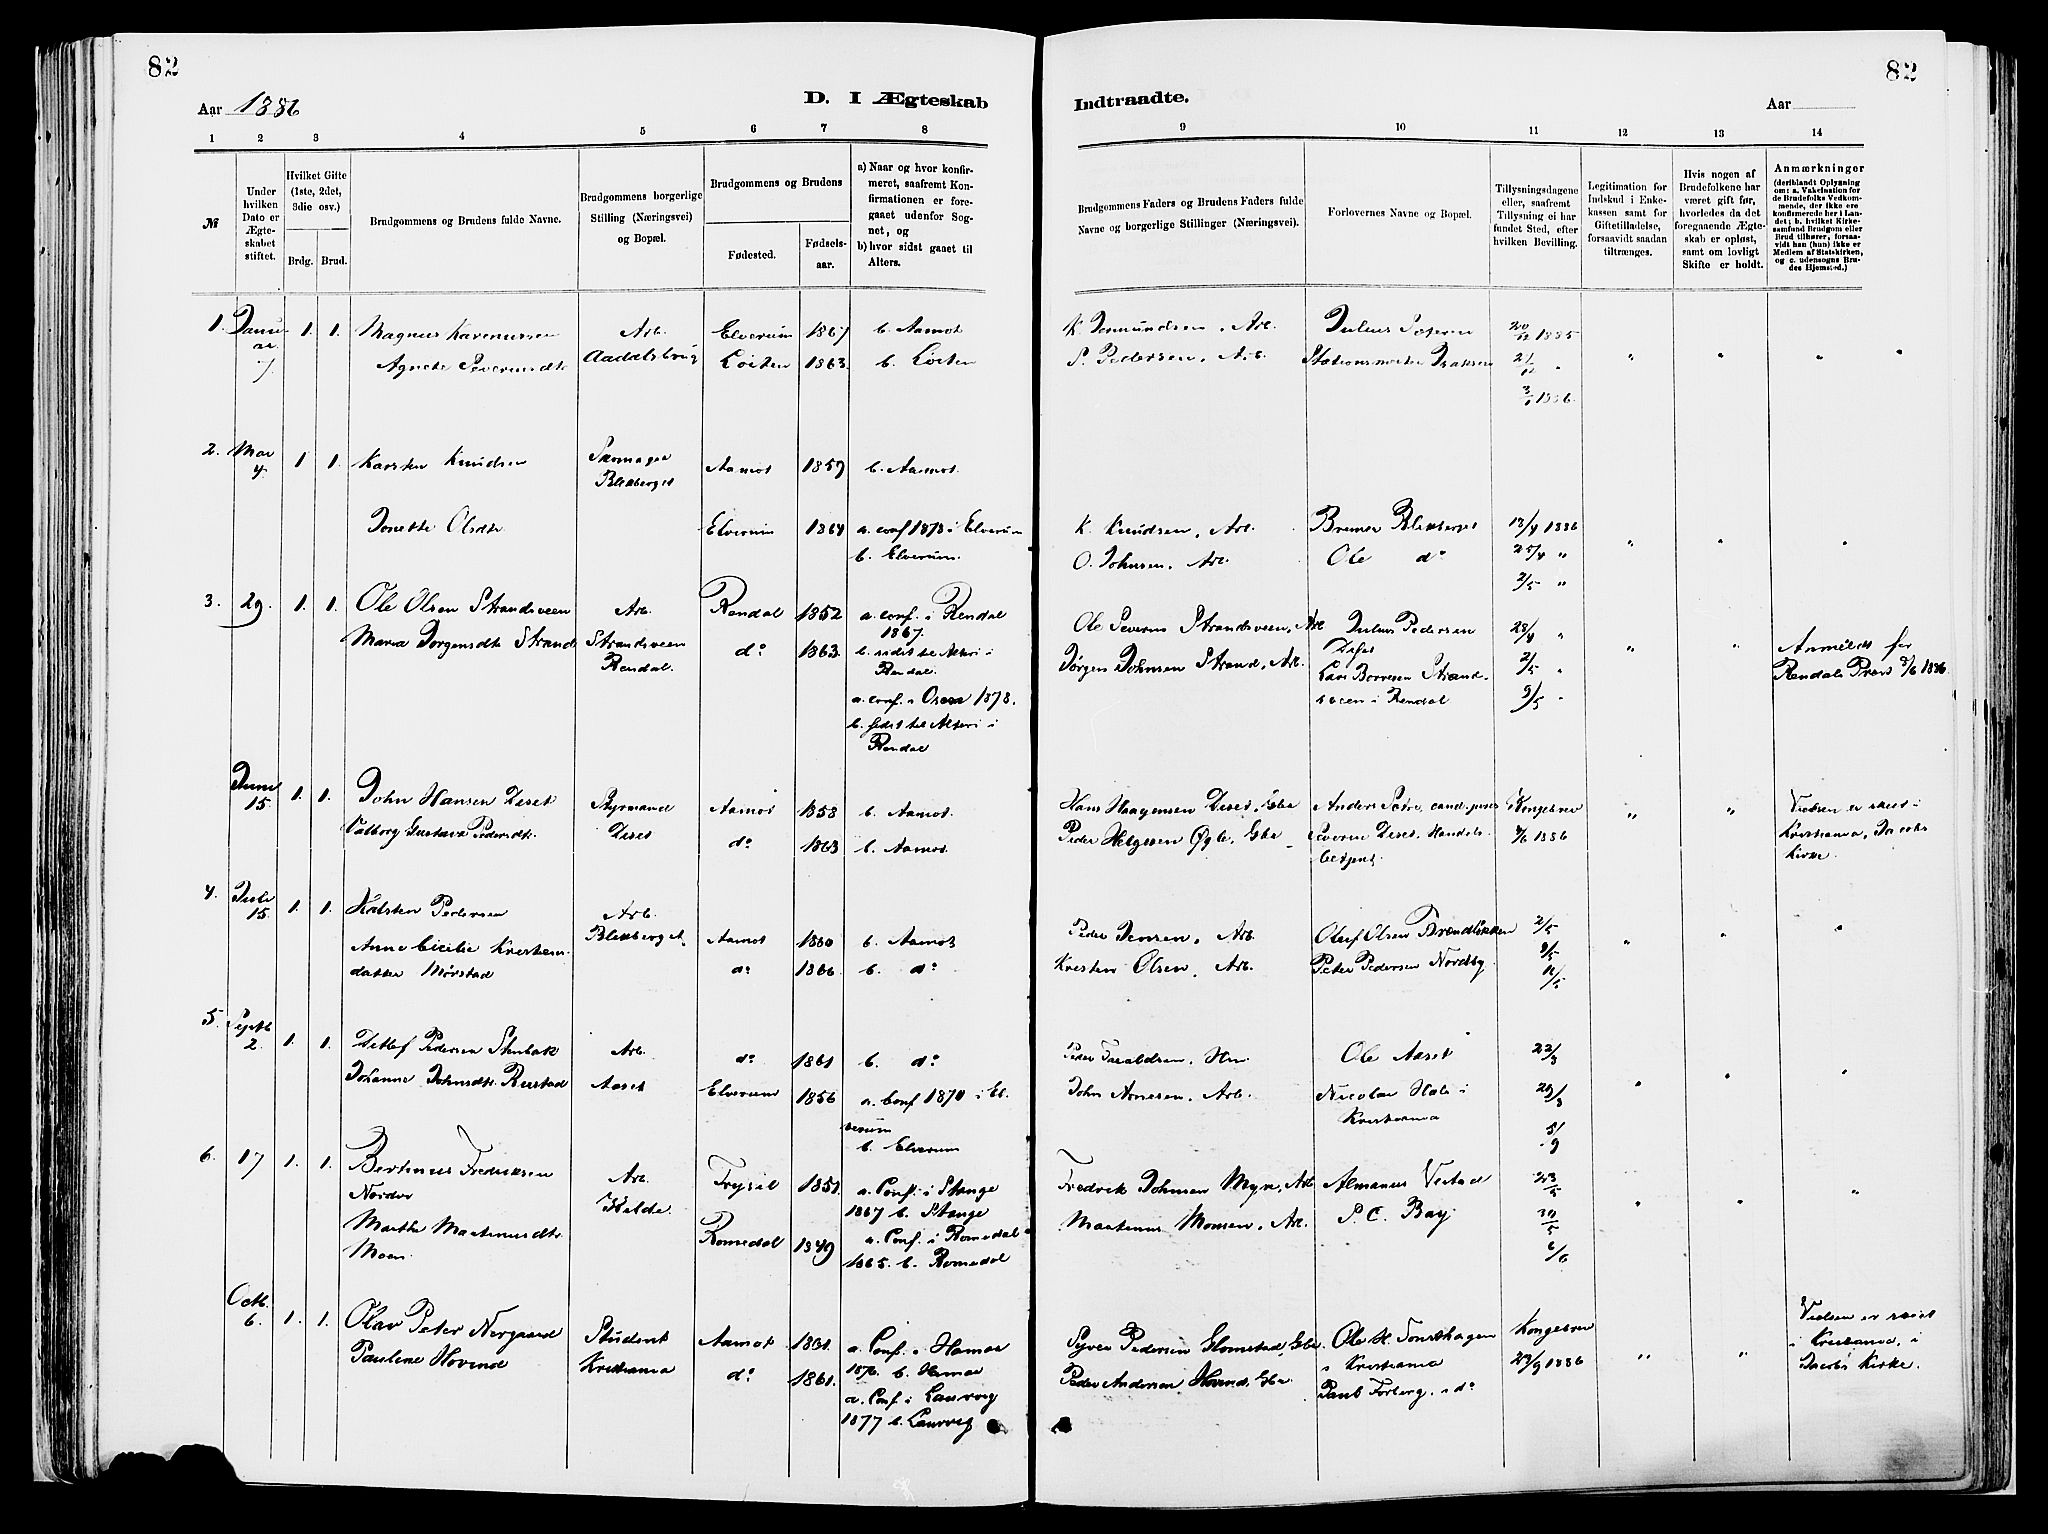 82
Aar 1886
D. I Ægteskab
1 2 3 4 5 6 7 8
№
Under hvilken Dato er Ægteskabet stiftet.
Hvilket Gifte (1ste, 2det, 3die osv.)
Brdg. Brud.
Brudgommens og Brudens fulde Navne.
Brudgommens borgerlige Stilling (Næringsvei) og Bopæl.
Brudgommens og Brudens
Fødested. Fødselsaar.
a) Naar og hvor konfirmeret, saafremt Konfirmationen er foregaaet udenfor Sognet, og
b) hvor sidst gaaet til Alters.
1. 1. 1. Magnus Arb. Elverum 1861 b. Aamot
7. Agnete Aadalsbrug Löiten 1863. b. Löiten
2. Mai 4. 1 1. Karsten Knudsen Aamot 1859 b. Aamot.
Blekberget
Jonette Olsdtr Elverum 1864 a. conf 1878 i Elverum
b. Elverum.
3. 29. 1. 1. Ole Olsen Strandsveen Arb. Rendal 1852 a. conf. i Rendal
1867.
Maria Jørgensdtr Strand Strandsveen do 1863. b. sidst til Alters i
Rendal. Rendal.
a. conf. i Osen 1878.
b. sidst til Alters i
Rendal
Juni 15 1. 1. John Hansen Deset Styrmand Aamot 1858 b. Aamot.
Valborg Gustava Pedersdtr. Deset do 1863 b. Aamot.
4. Juli 15. 1. 1. Halsten Pedersen Arb.
Blekberget. Aamot 1860 b. Aamot
Anne Cicilie Kristiansdatter Mörstad do 1866. b. do
5. Septb 2. 1. 1. Detlef Pedersen Stenbak Arb. do 1861 b. do
Johanne Johnsdtr. Aaset Elverum 1856 a. Conf 1870 i Elverum
b. Elverum
6. 17 1. 1. Bertinus Fredriksen Arb. Trysil 1851. a. Conf. i Stange
1867 b. Stange
Marthe Martinusdtr. Romedal 1849 a. Conf. i Romedal
Moen 1865. b. Romedal
Octb. 6. 1. 1. Olav Peter Nergaard Student Aamot 1861. a. Conf. i Hamar
1876. b. Hamar
Pauline Hovind Kristiania do 1861. a. Conf. i Laurvig
1877 b. Laurvig
82
Indtraadte.
Aar
9 10 11 12 13 14
Brudgommens Faders og Brudens Faders fulde Navne og borgerlige Stillinger (Næringsvei).
Forlovernes Navne og Bopæl.
Tillysningsdagene eller, saafremt Tillysning ei har fundet Sted, efter hvilken Bevilling.
Legitimation for Indskud i Enkekassen samt for Giftetilladelse, forsaavidt saadan tiltrænges.
Hvis nogen af Brudefolkene har været gift før, hvorledes da det foregaaende Ægteskab er opløst, samt om lovligt Skifte er holdt.
Anmærkninger (deriblandt Oplysning om: a. Vakcination for de Brudefolks Vedkommende, der ikke ere konfirmerede her i Landet; b. hvilket Kirkesamfund Brudgom eller Brud tilhører, forsaavidt han (hun) ikke er Medlem af Statskirken, og c. udensogns Brudes Hjemsted.)
K. Jomundsen, Arb. Julius 20/12 1885
P. Pedersen, Arb. Stationsmester Isaksen 27/12 " " " " "
3/1 1886.
K. Knudsen, Arb. Bremer Blekberget 18/4 1886
O. Johnsen, Arb. Ole do 25/4 " " " "
2/5 "
Ole Severin Strandsveen, Arb Julius Pedersen 28/4 "
Jørgen Johnsen Strand, Arb. Lars Strandsveen i Rendal 2/5 " " " Anmeldt for
9/5 " Rendals Præst 3/6 1886.
Hans Haagensen Deset, Gbr Anders Sætre, cand. juris Kongebrev " " Vielsen er skeet i
Peder Helgesen Øgle, Gbr Severin Deset, Handels- 9/6 1886 Kristiania, Jacobs
betjent. Kirke.
Peder Jensen, Arb. Oluf Olsen Brændbakken 2/5
Kristian Olsen, Arb. Peter Pedersen Nordby. 9/5 " " "
16/5
Peder Taraldsen, Ole Aaset 22/8
John Arnesen, Arb. Nicolai i 29/8 " " "
Kristiania 5/9
Fredrik Johnsen Myr, Arb Almanus Vestad 23/5
Martinus Monsen, Arb. P. C. Bay 30/5 " " "
6/6
Syver Pedersen Glomstad, Gbr. Ole H. Tønsethagen Kongebrev Vielsen er skeet
i Kristiania 29/9 1886 " " i Kristiania, i
Peder Andersen Hovind, Gbr. Paul Forberg, i do Jacobs Kirke.